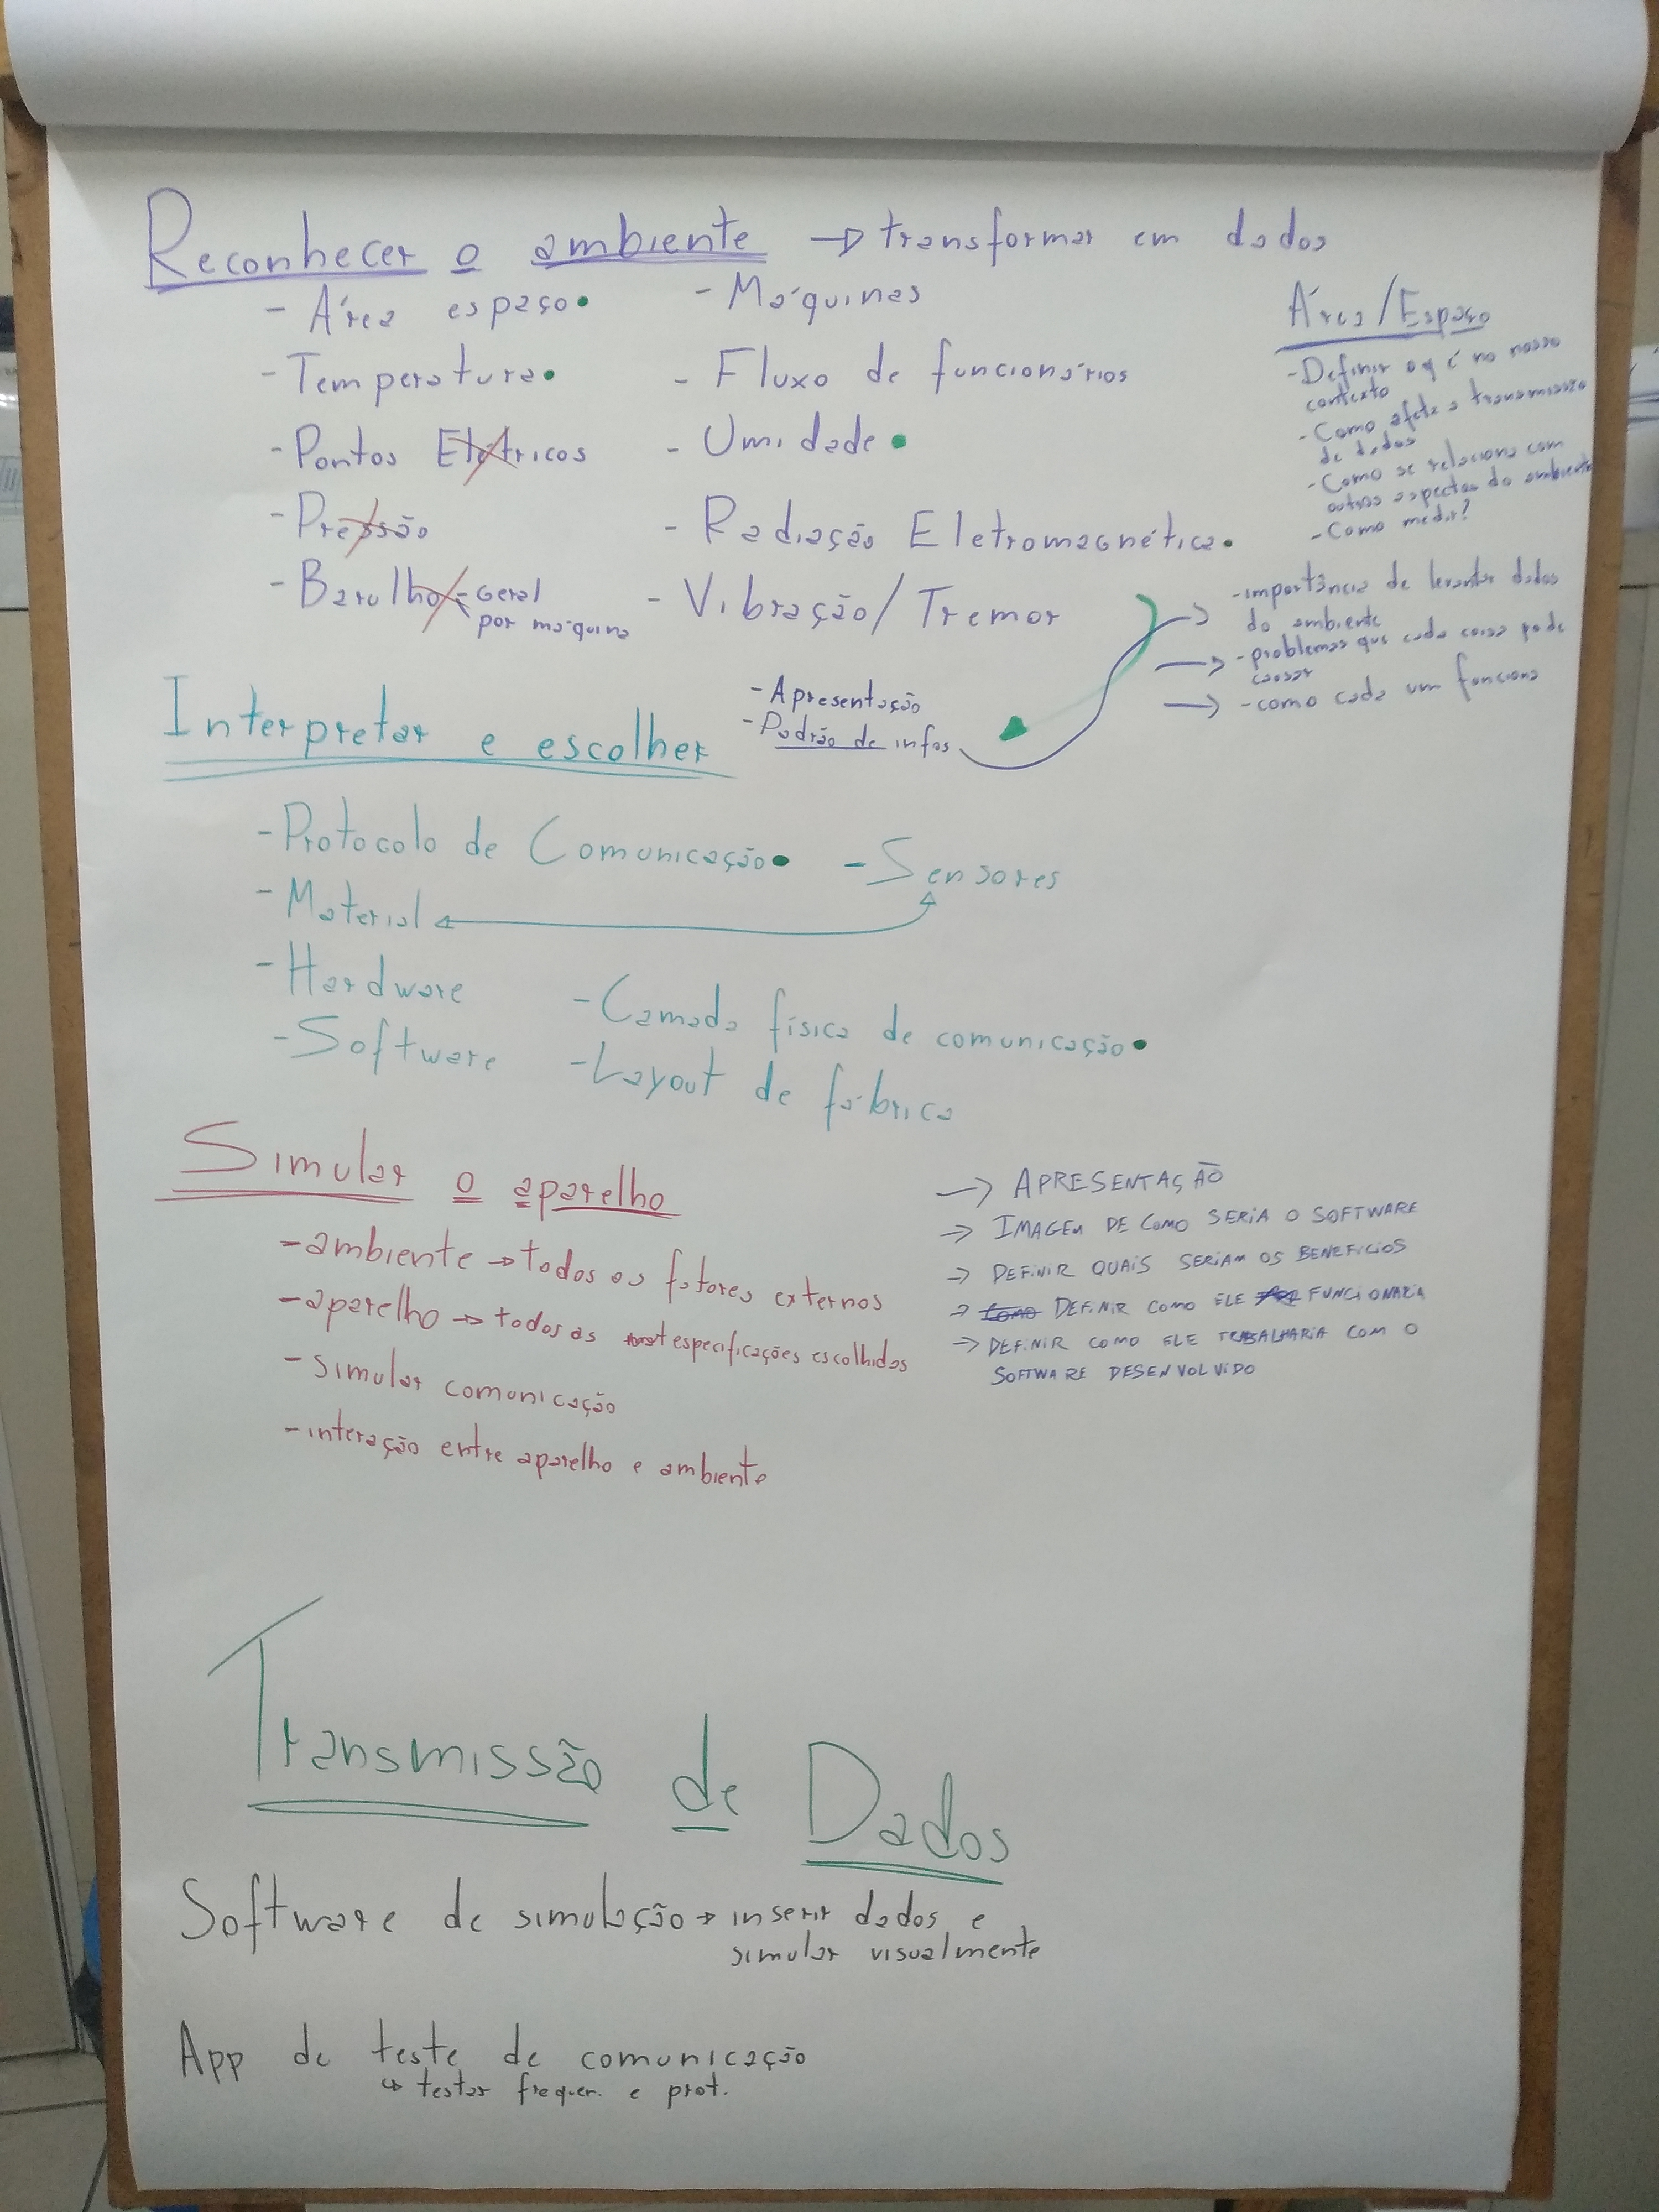 Reconhecer o ambiente → transformar em dados
- Área espaço
- Temperatura
- Pontos Elétricos
- Pressão
- Barulho - Geral
por máquina
- Máquinas
- Fluxo de funcionários
- Umidade
- Radiação Eletromagnética
- Vibração/Tremor
Área/Espaço
- Definir oq é no nosso
contexto
- Como afeta a transmissão
de dados
- Como se relaciona com
outros aspectos do ambiente
- Como medir?
→ - importância de levantar dados
do ambiente
→ - problemas que cada coisa pode
causar
→ - como cada um funciona
Interpretar e escolher
- Apresentação
- Padrão de infos
- Protocolo de Comunicação
- Sensores
- Material
- Hardware
- Software
- Camada física de comunicação
- Layout de fábrica
Simular o aparelho
- ambiente → todos os fatores externos
- aparelho → todos as especificações escolhidas
- simular comunicação
- interação entre aparelho e ambiente
→ APRESENTAÇÃO
→ IMAGEM DE COMO SERIA O SOFTWARE
→ DEFINIR QUAIS SERIAM OS BENEFICIOS
→ COMO DEFINIR COMO ELE FUNCIONARIA
→ DEFINIR COMO ELE TRABALHARIA COM O
SOFTWARE DESENVOLVIDO
Transmissão de Dados
Software de simulação → inserir dados e
simular visualmente
App de teste de comunicação
↳ testar frequen. e prot.